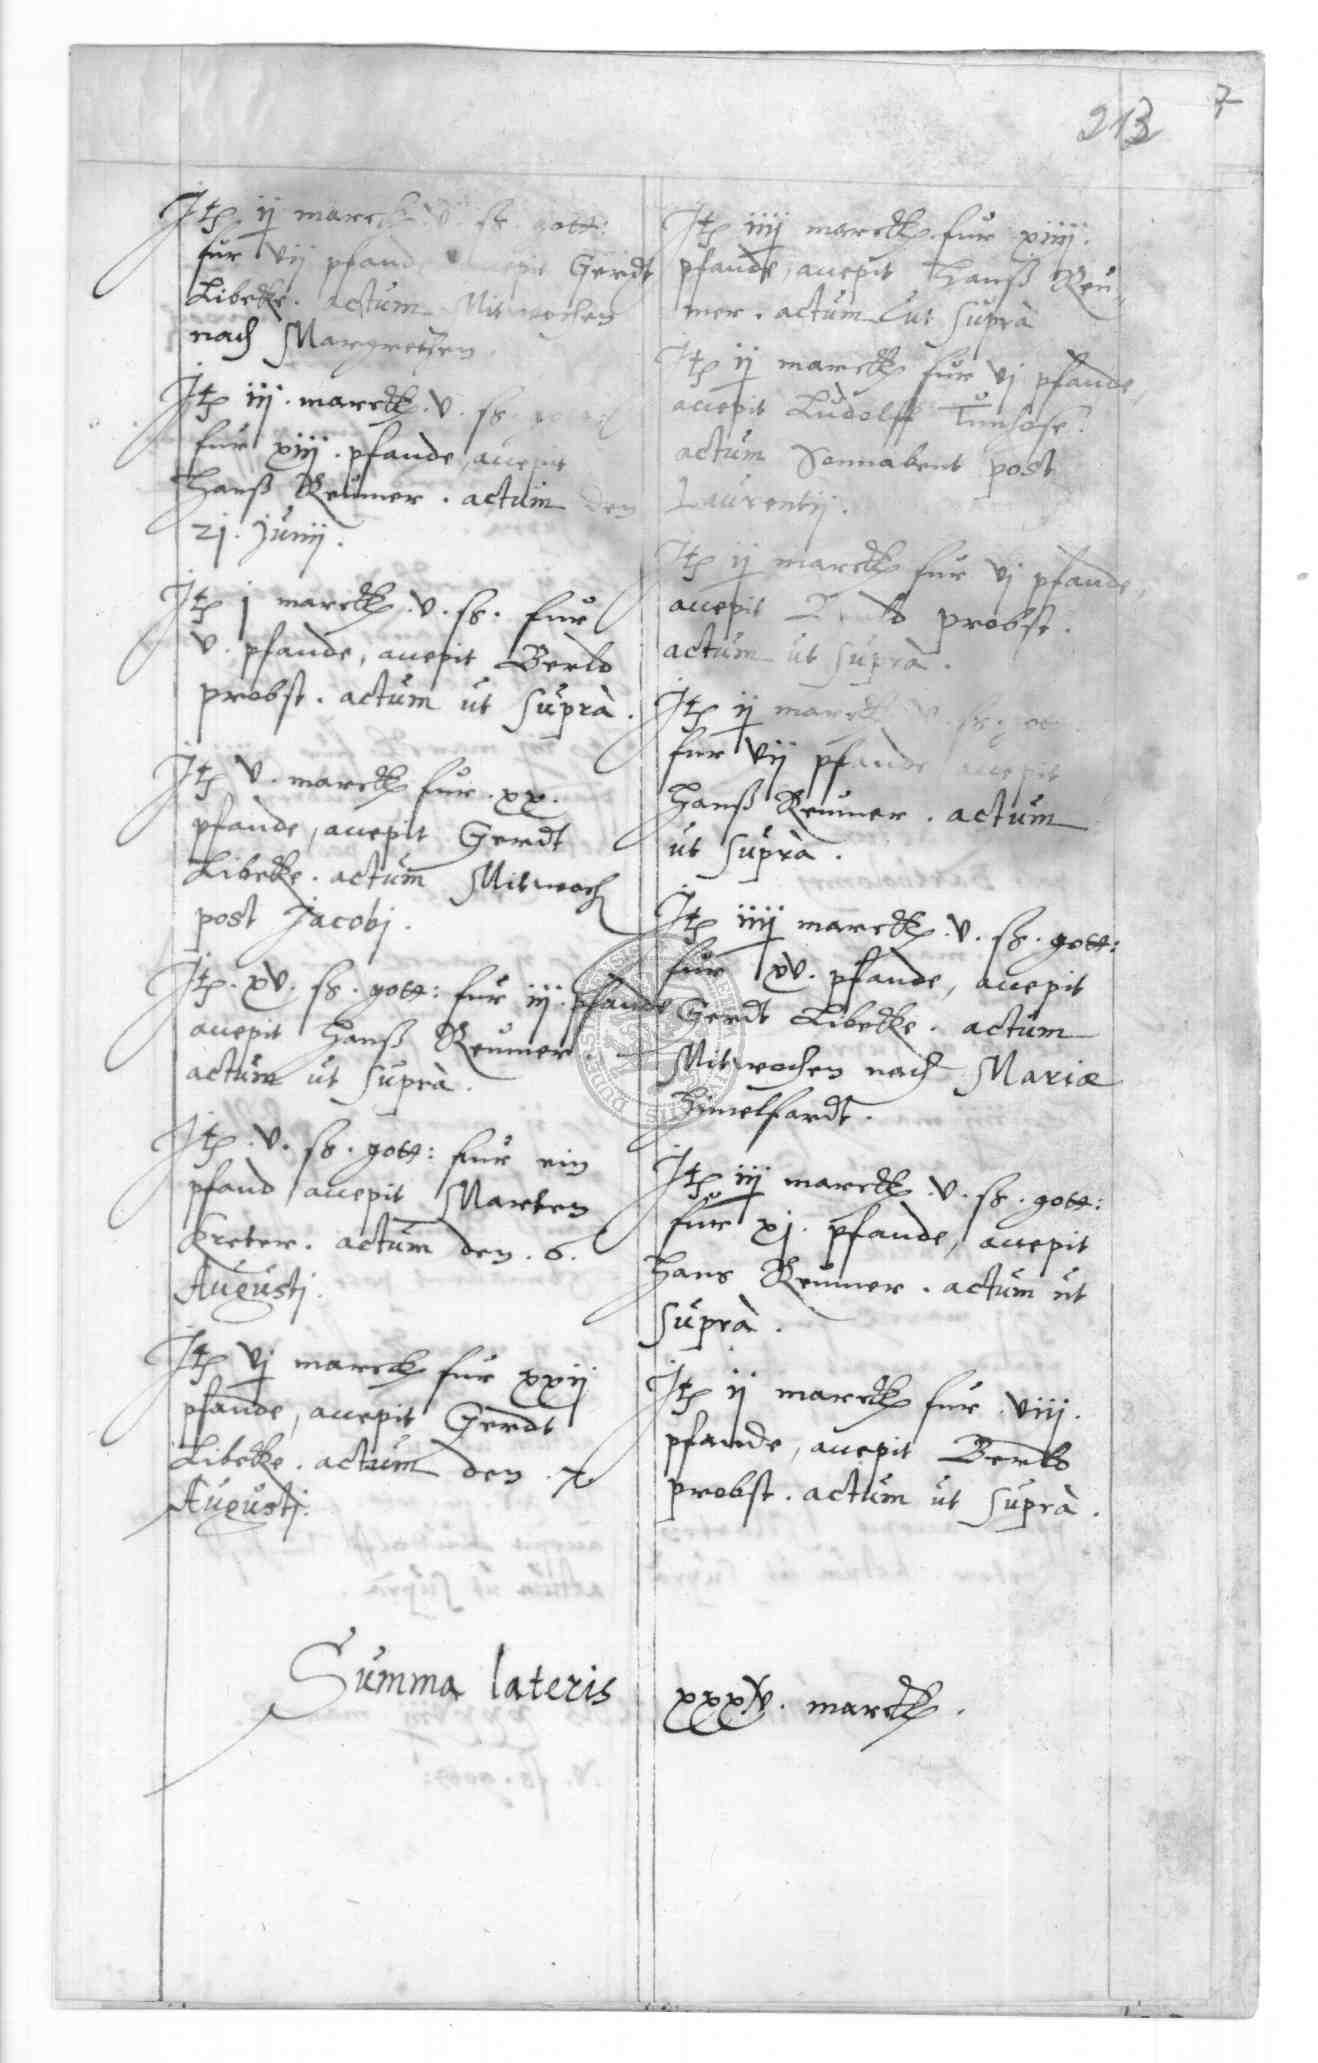 213
7
Itē ij marck v. ß. gott:
fůr vij pfande, accepit Gerdt
Libekke. actum Mitwochen
nach Margreten
Itē iij. marckē. v. ß. gott:
fůr xiij. pfande, accepit
Hanß Reumer. actum den
21. Junij.
Itē j marckē. v. ß. fůr
v. pfande, accepit Berld
probst. actum ut suprà.
Itē v. marckē fůr. xx.
pfande, accepit Gerdt
Libekke. actum Mitwoch
post Jacobj.
Itē. xv. ß. gott: fůr iij. pfande
accepit Hanß Reumer.
actum ut suprà.
Itē. v. ß. gott: fůr ein
pfand accepit Marten
Kreter. actum den. 6.
Augustj.
Itē vj marck fůr xxij
pfande, accepit Gerdt
Libekke. actum den. 7
Augustj.
Itē iiij marckē fůr xiiij.
pfande, accepit Hanß Reu-
mer. actum ut suprà
Itē ij marckē fůr vj pfande,
accepit Ludolff Tunhose.
actum Sonnabent post
Laurentij.
Itē ij marckē fůr vj pfande,
accepit probst.
actum ut suprà.
Itē ij marckē v. ß. gott
fůr vij pfande accepit
Hanß Reumer. actum
ut suprà.
Itē iiij marckē. v. ß. gott:
fůr xv. pfande, accepit
Gerdt Libekke. actum
Mitwochen nach Mariæ
Himelfardt.
Itē iij marckē. v. ß. gott:
fůr xj. pfande, accepit
Hans Reumer. actum ut
suprà.
Itē ij marckē fůr. viij.
pfande, accepit Berld
probst. actum ut suprà.
Summa lateris xxxv. marckē.